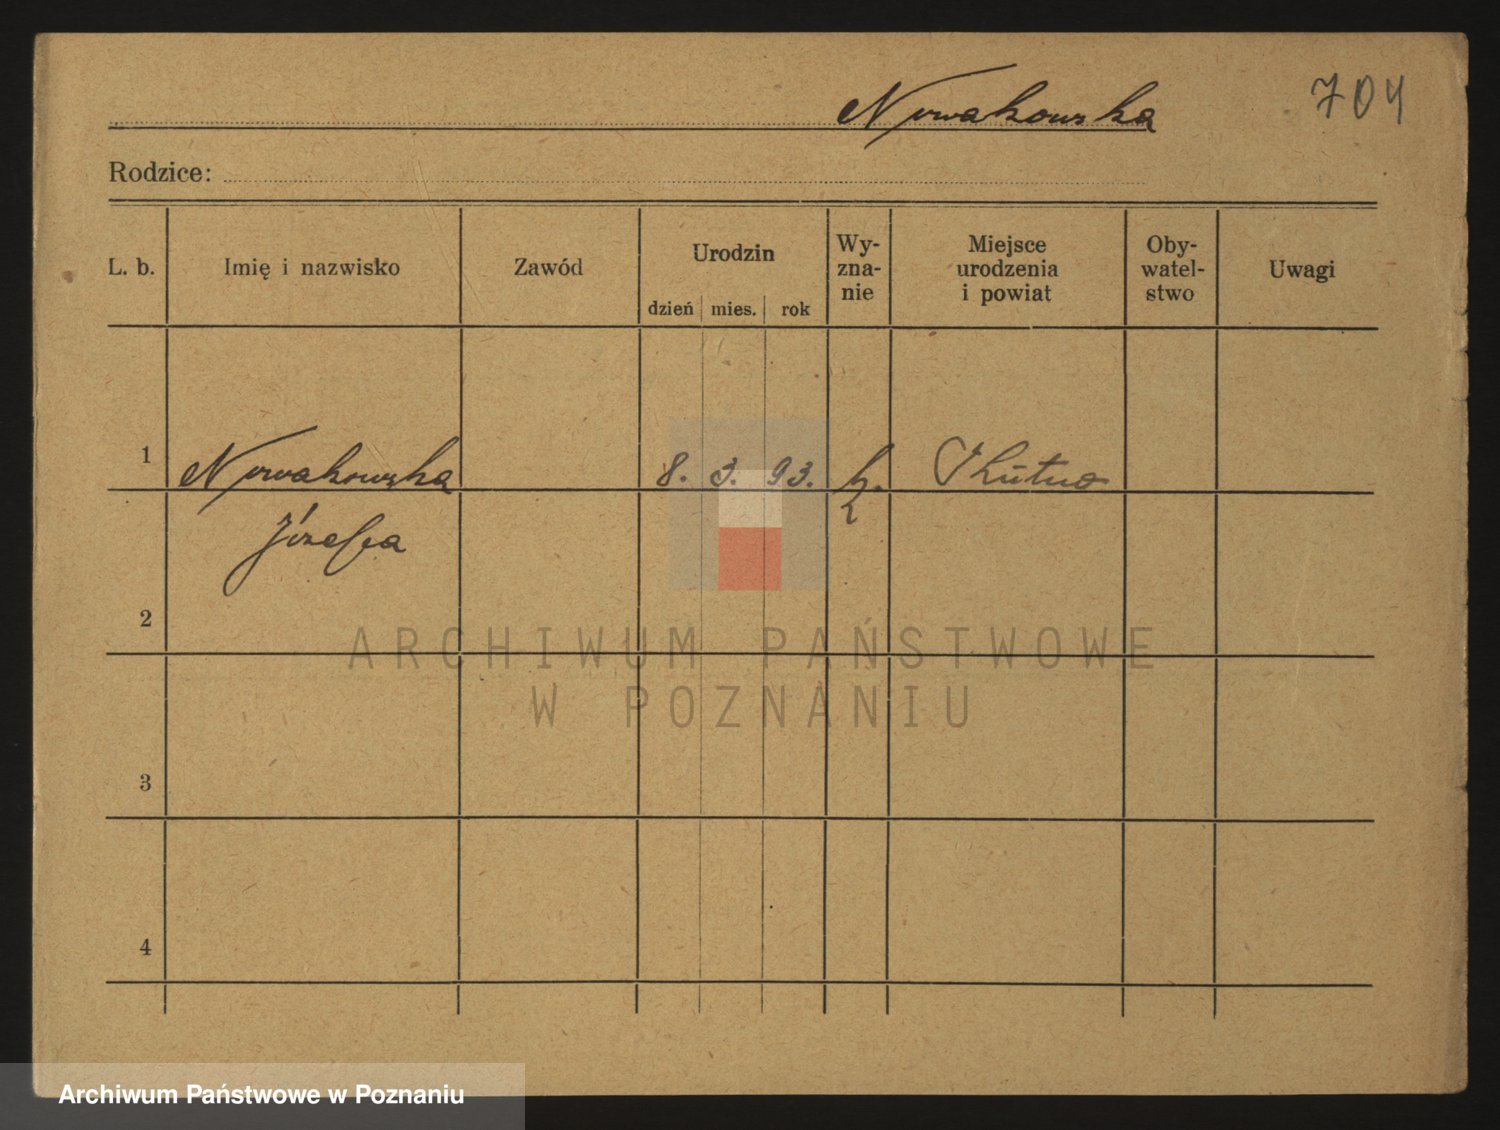 Nowakowska 704
Rodzice:
L. b. Imię i nazwisko Zawód Urodzin dzień mies. rok Wy-zna-nie Miejsce urodzenia i powiat Oby-watel-stwo Uwagi
1 Nowakowska 8. 3. 93. k. Kutno
Józefa
2
ARCHIWUM PAŃSTWOWE
W POZNANIU
3
4
Archiwum Państwowe w Poznaniu